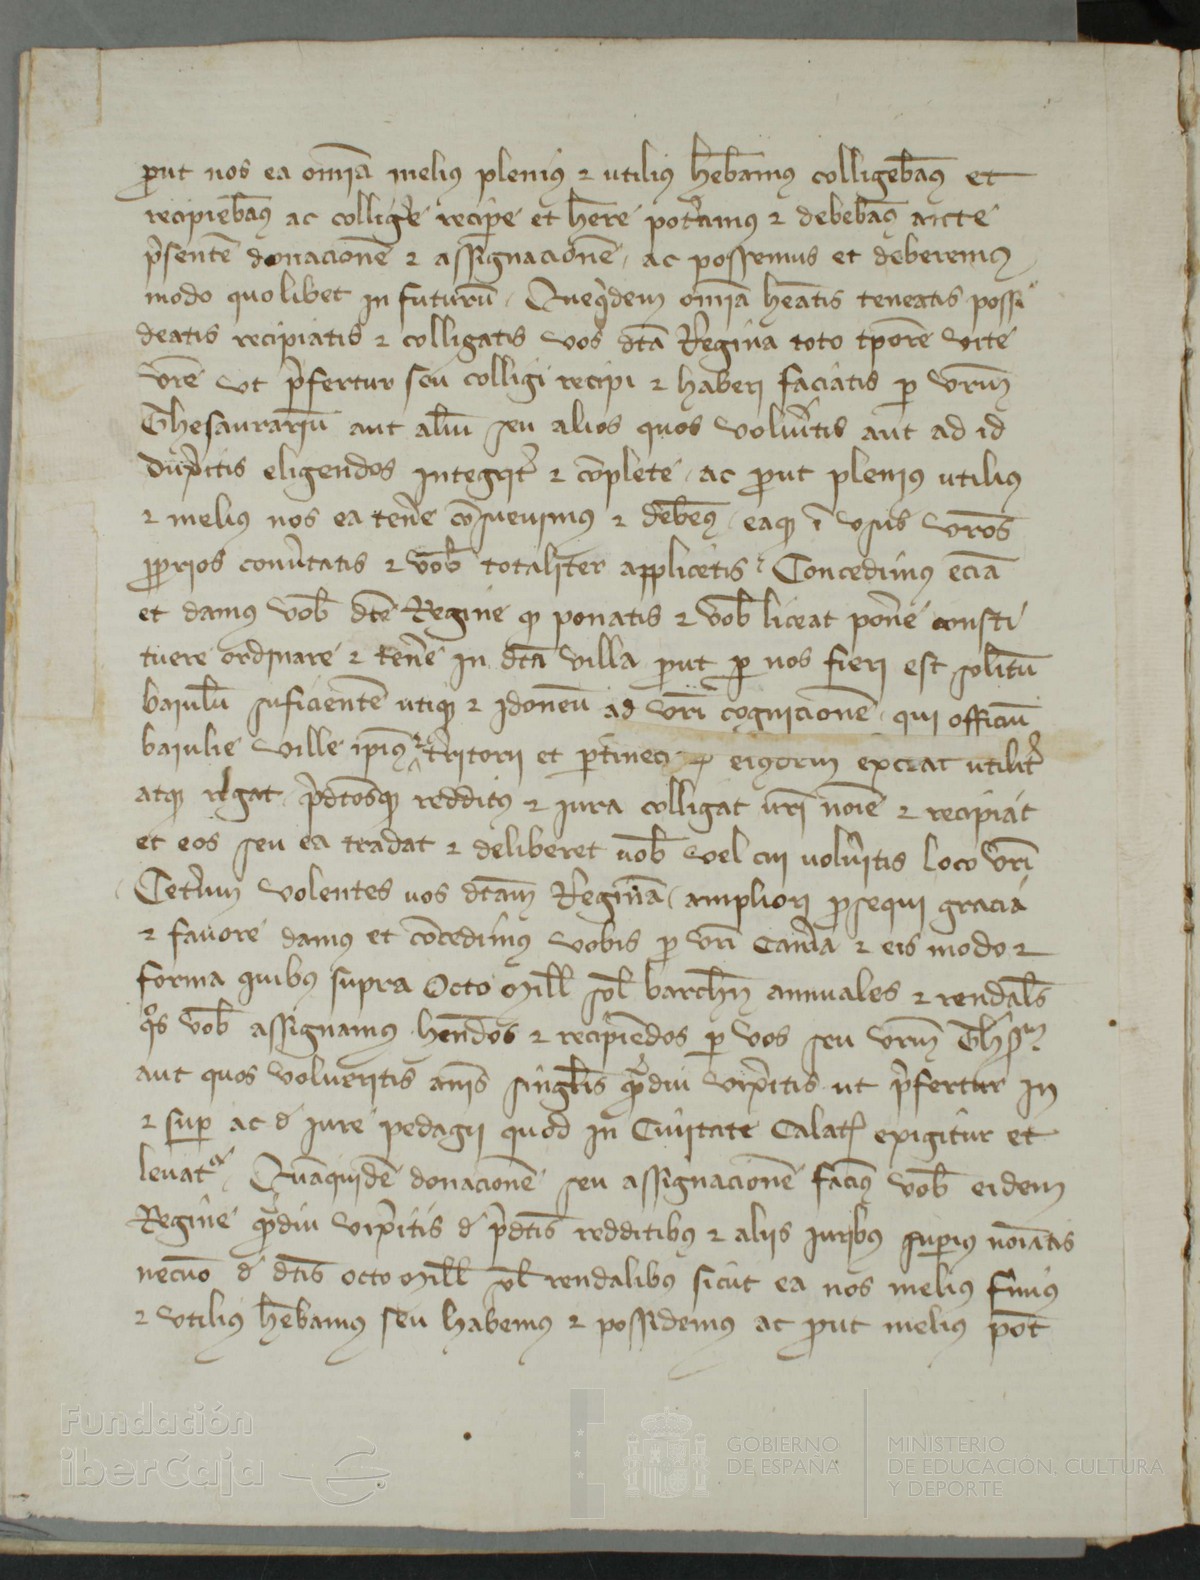 prout nos ea om̄ia melius plenius ⁊ utilius hēbamus colligebam̄s et
recipiebam̄s ac colligˀe recipˀe et hēre potˀamus ⁊ debebam̄s ante
pˀsentē donacionē ⁊ assignacionē / ac possemus et deberemus
modo quolibet in futurū / Quequidem om̄ia heātis teneatis possi
deatis recipiatis ⁊ colligatis vos dc̄ta Regina toto tp̄ore vite
vr̄e ut pˀfertur seu colligi recipi ⁊ haberi faciatis per vr̄m
Thesaurariū aut aliū seu alios quos voluˀitis aut ad id
duxˀitis eligendos integrit̄ ⁊ cōplete / ac prout plenius utilius
⁊ melius nos ea tenˀe cōsueuimus ⁊ debem̄s / eaque ī usus vr̄os
proprios conuˀtatis ⁊ vob̄ totaliter applicetis / Concedimus eciā
et damus vob̄ dc̄te Regine quod ponatis ⁊ vob̄ liceat ponˀe consti
tuere ordinare ⁊ tenˀe in dc̄ta villa prout per nos fieri est solitū
baiulū suficientē utique ⁊ idoneū ad vr̄i cognicionē / qui officiū
baiulie ville ip̄ius ⁊ tˀritorii et pertinē eiusdem exerceat utilitˀ
atque regat / pˀdc̄tosque redditus ⁊ iura colligat vr̄i noīe ⁊ recipiat
et eos seu ea tradat ⁊ deliberet uob̄ vel cui uoluˀitis loco vr̄i
Cetˀum volentes uos dc̄tam Reginā / ampliori prosequi gracia
⁊ fauore damus et cōcedimus vobis pro vr̄i camˀa ⁊ eis modo ⁊
forma quibus supra Octo mill̄ sol̄ barchn̄ annuales ⁊ rendal̄s
quos vob̄ assignamus hēndos ⁊ recipiēdos per vos seu vr̄m Thˀm
aut quos volueritis anīs singl̄is quādiu vixˀitis ut pˀfertur in
⁊ super ac de iure pedagii quod in Ciuitate Calat̄ exigitur et
leuatur / Quāquidē donacionē seu assignacionē facim̄s vob̄ eidem
Regine quādiu vixˀitis de pˀdc̄tis redditibus ⁊ aliis iuribus superius noīatis
necnō de dc̄tis octo mill̄ sol̄ rendalibus sicut ea nos melius firmius
⁊ utilius hēbamus seu habemus ⁊ possidemus ac prout melius pōt
Fundación
iberCaja
GOBIERNO
DE ESPAÑA
MINISTERIO
DE EDUCACIÓN, CULTURA
Y DEPORTE